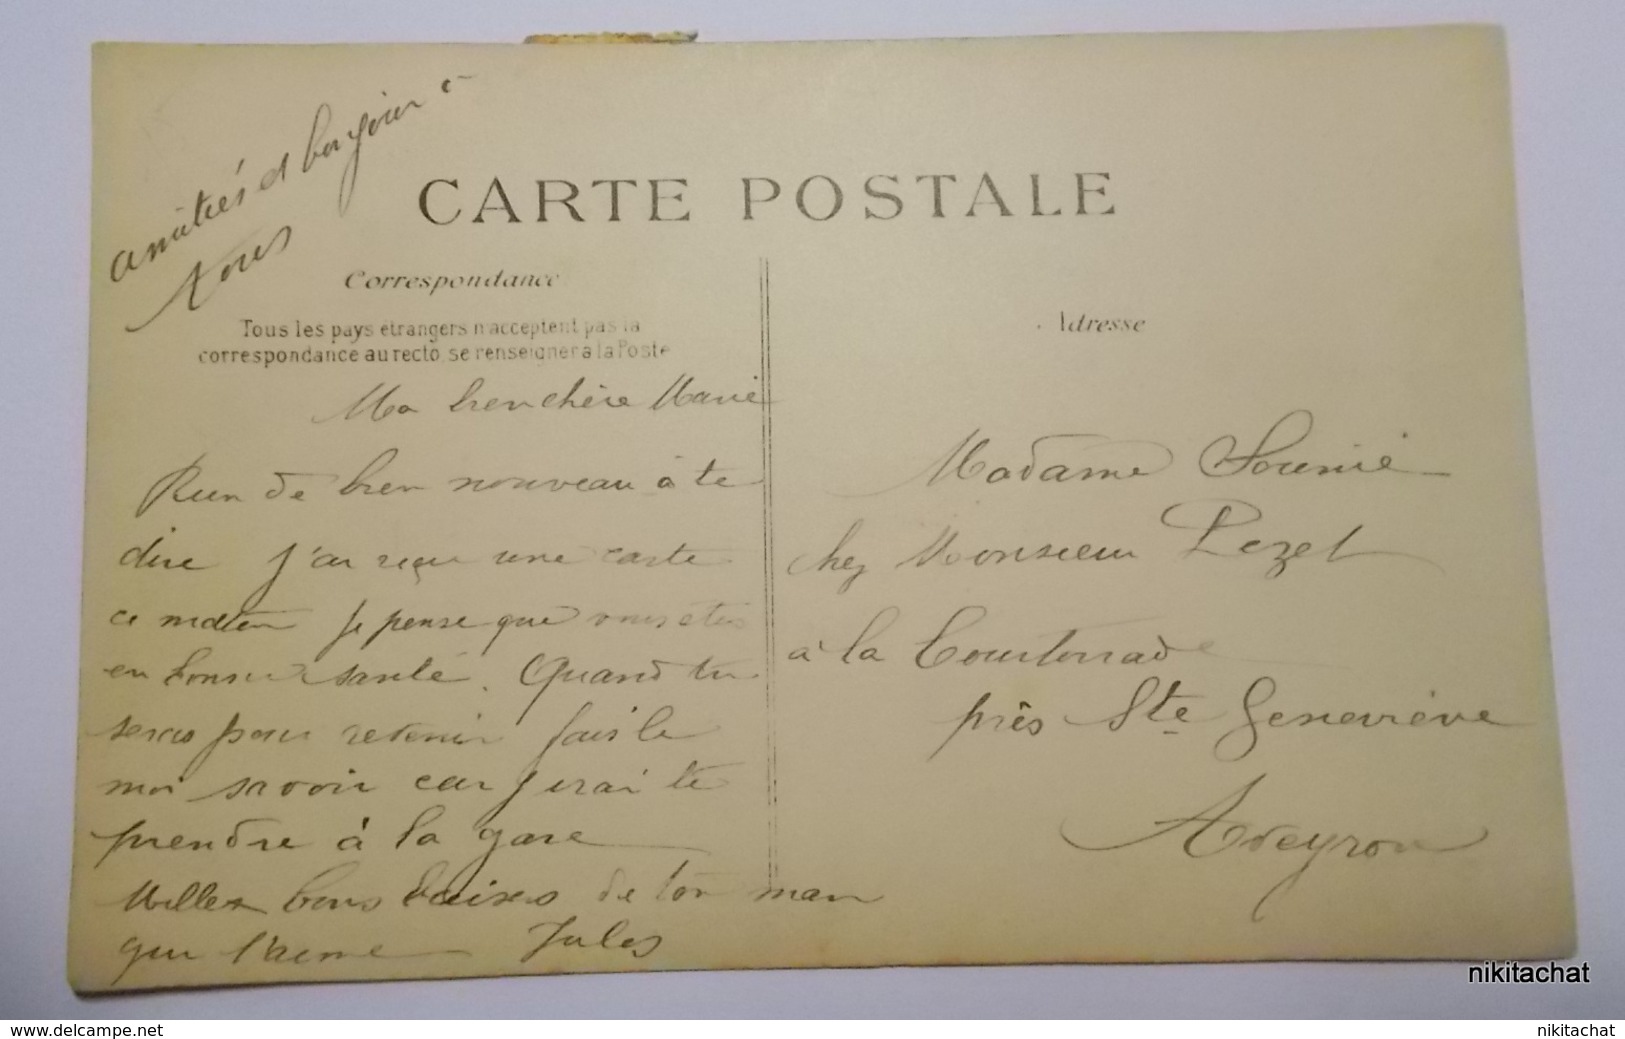 amitiés et bonjour à
tous
CARTE POSTALE
Correspondance
Tous les pays étrangers n'acceptent pas la
correspondance au recto, se renseigner à la Poste
Adresse
Ma bien chère Marie
Rien de bien nouveau à te
dire j'ai reçu une carte
ce matin je pense que vous etes
en bonne santé. Quand tu
seras pour retenir fais le
moi savoir car j'irai te
prendre à la gare
Milles bons baisers de ton mari
qui t'aime Jules
Madame Sounié
chez Monsieur Pezet
à la Courtorrade
près Ste Geneviève
Aveyron
nikitachat
www.delcampe.net
nikitachat